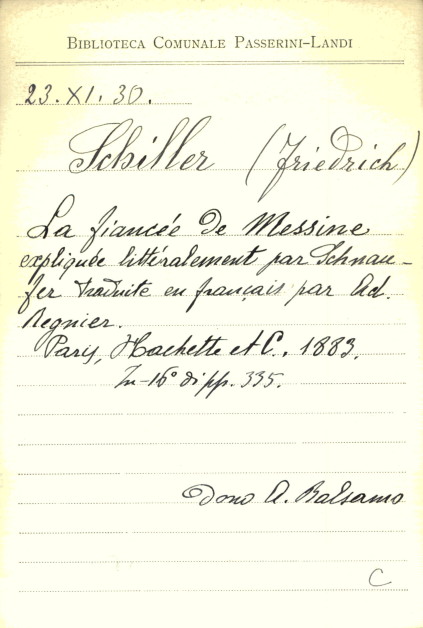 BIBLIOTECA COMUNALE PASSERINI-LANDI
23.XI.30.
Schiller (Friedrich)
La fiancée de Messine
expliquée littéralement par Schnau-
fer traduite en français par Ad.
Regnier.
Paris, Hachette et C., 1883.
In-16° di pp. 335.
Dono A. Balsamo
C